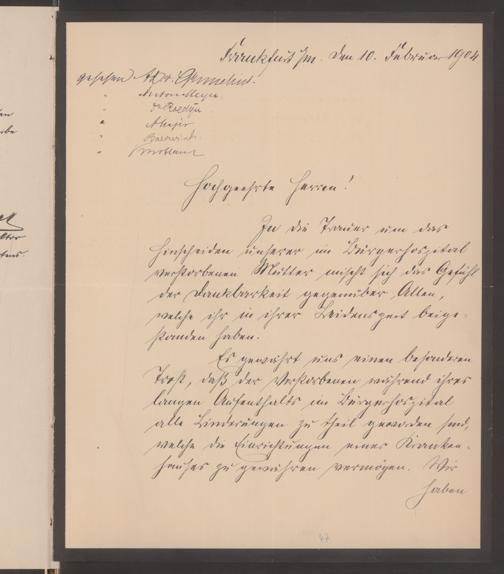 Frankfurt a/m. den 10. Februar 1904
gesehen
Hochgeehrte Herren!
In die Trauer um das
Hinscheiden unserer im Bürgerhospital
verstorbenen Mutter mischt sich das Gefühl
der Dankbarkeit gegenüber Allen,
welche ihr in ihrer Leidenszeit beige-
standen haben.
Es gewährt uns einen besonderen
Trost, daß der Verstorbenen während ihres
langen Aufenthalts im Bürgerhospital
alle Linderungen zu theil geworden sind,
welche die Einrichtungen eines Kranken-
hauses zu gewähren vermögen. Wir
haben
47